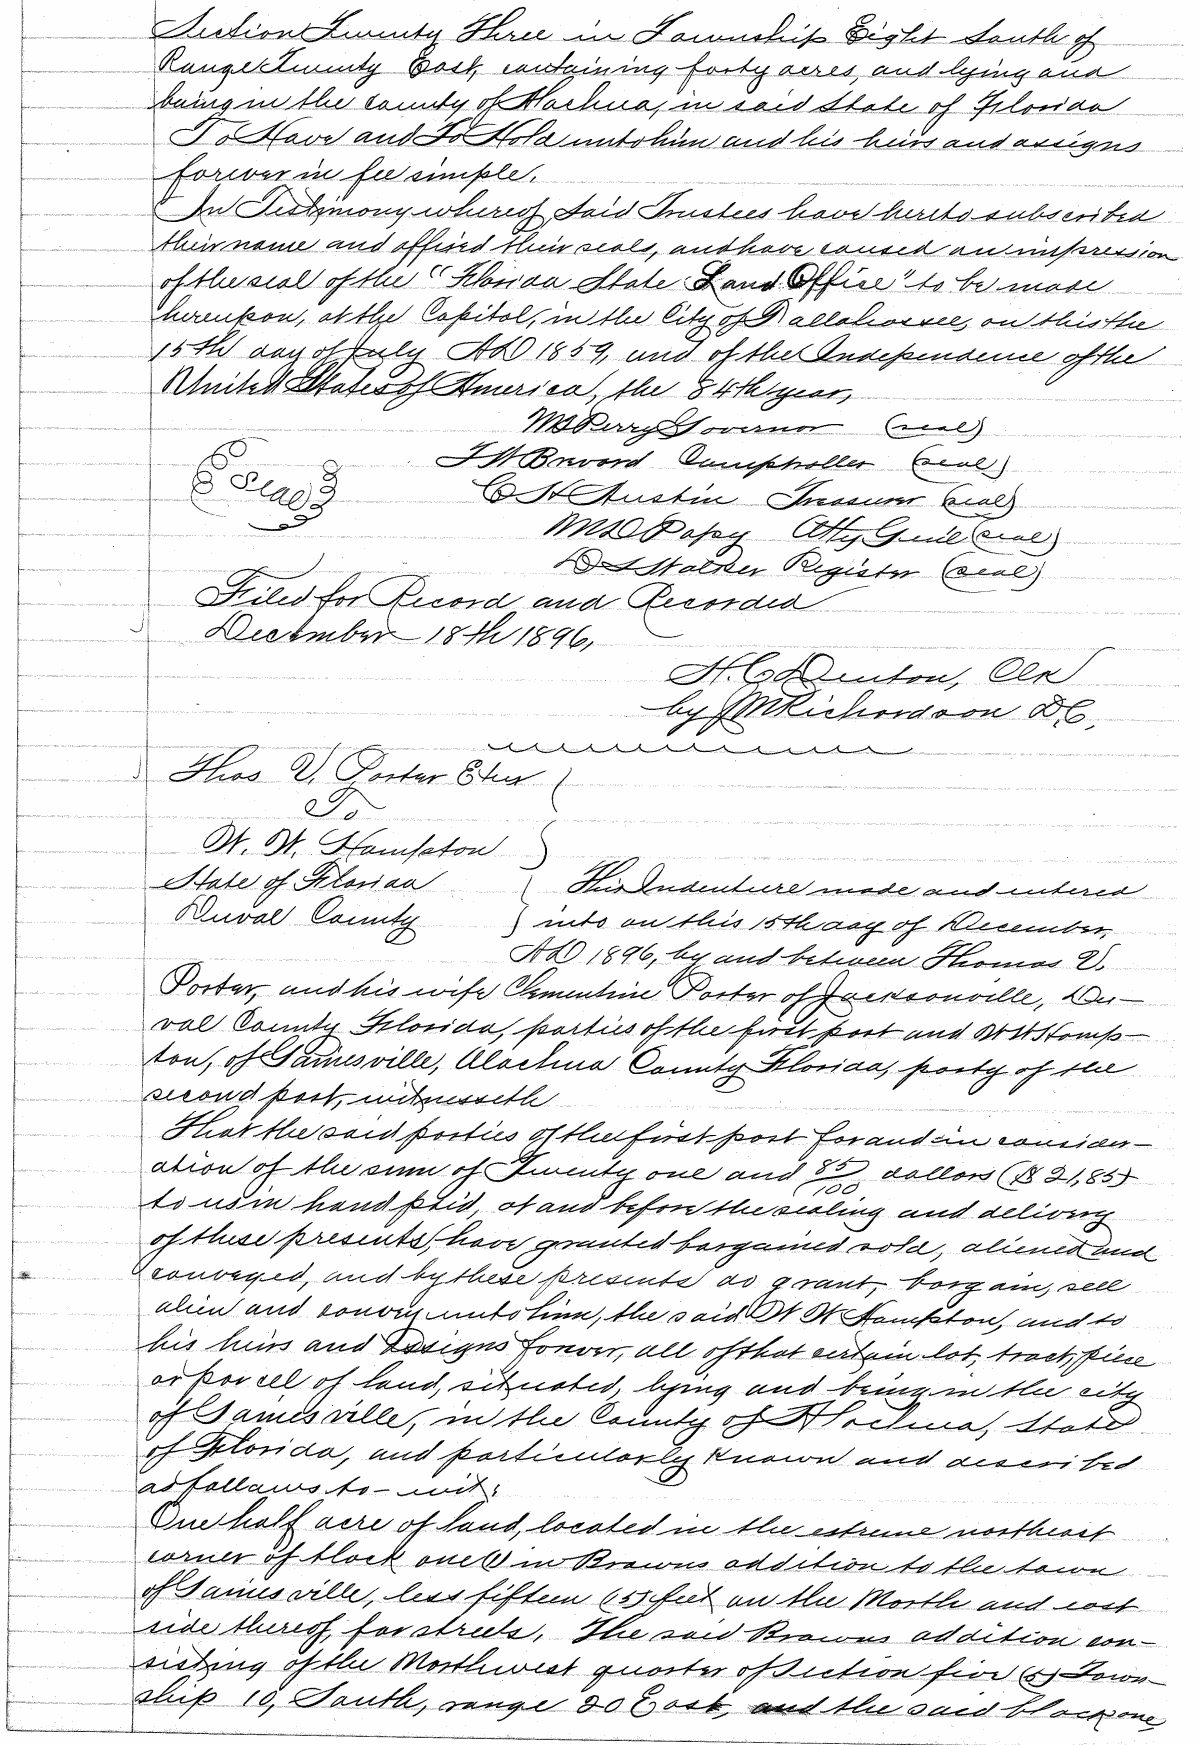 Section Twenty Three in Township Eight South of
Range Twenty East, containing forty acres, and lying and
being in the county of Alachua, in said State of Florida
To Have and To Hold unto him and his heirs and assigns
forever in fee simple.
In Testimony whereof said Trustees have hereto subscribed
their name and affixed their seals, and have caused an impression
of the seal of the "Florida State Land Office" to be made
hereupon, at the Capitol, in the City of Tallahassee, on this the
15th day of July AD 1859, and of the Independence of the
United States of America, the 84th year,
MS Perry Governor (seal)
T W Brevard Comptroller (seal)
C H Austin Treasurer (seal)
Seal
M D Papy Atty Genl (seal)
D S Walker Register (seal)
Filed for Record and Recorded
December 18th 1896,
H. C. Denton, Clk
by J M Richardson D C,
Thos V. Porter Etux
To
W. W. Hampton
State of Florida } This Indenture made and entered
Duval County } into on this 15th day of December,
AD 1896, by and between Thomas V.
Porter, and his wife Clementine Porter of Jacksonville, Du-
val County Florida, parties of the first part and W W Hamp-
ton, of Gainesville, Alachua County Florida, party of the
second part, witnesseth
That the said parties of the first part for and in consider-
ation of the sum of Twenty one and 85/100 dollars ($21,85)
to us in hand paid, at and before the sealing and delivery
of these presents, have granted bargained sold, aliened and
conveyed, and by these presents do grant, bargain, sell
alien and convey unto him, the said W W Hampton, and to
his heirs and assigns forever, all of that certain lot, tract, piece
or parcell of land, situated, lying and being in the city
of Gainesville, in the County of Alachua, State
of Florida, and particularly known and described
as follows to-wit:
One half acre of land, located in the extreme northeast
corner of block one (1) in Browns addition to the town
of Gainesville, less fifteen (15) feet on the North and east
side thereof, for streets. The said Browns addition con-
sisting of the Northwest quarter of Section five (5) Town-
ship 10, South, range 20 East, and the said block one